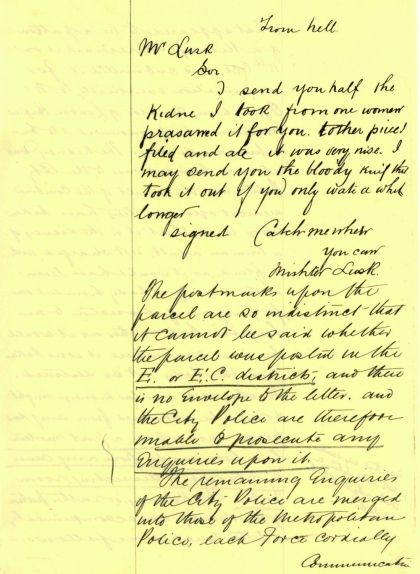 From hell.
Mr Lusk
Sor
I send you half the
Kidne I took from one women
prasarved it for you. tother piece I
fried and ate it was very nise. I
may send you the bloody knif that
took it out if you only wate a whil
longer
signed Catch me when
you can
Mishter Lusk.
The postmarks upon the
parcel are so indistinct that
it cannot be said whether
the parcel was posted in the
E. or E.C. districts, and there
is no envelope to the letter. and
the City Police are therefore
unable to prosecute any
enquiries upon it.
The remaining Enquiries
of the City Police are merged
into those of the Metropolitan
Police, each Force cordially